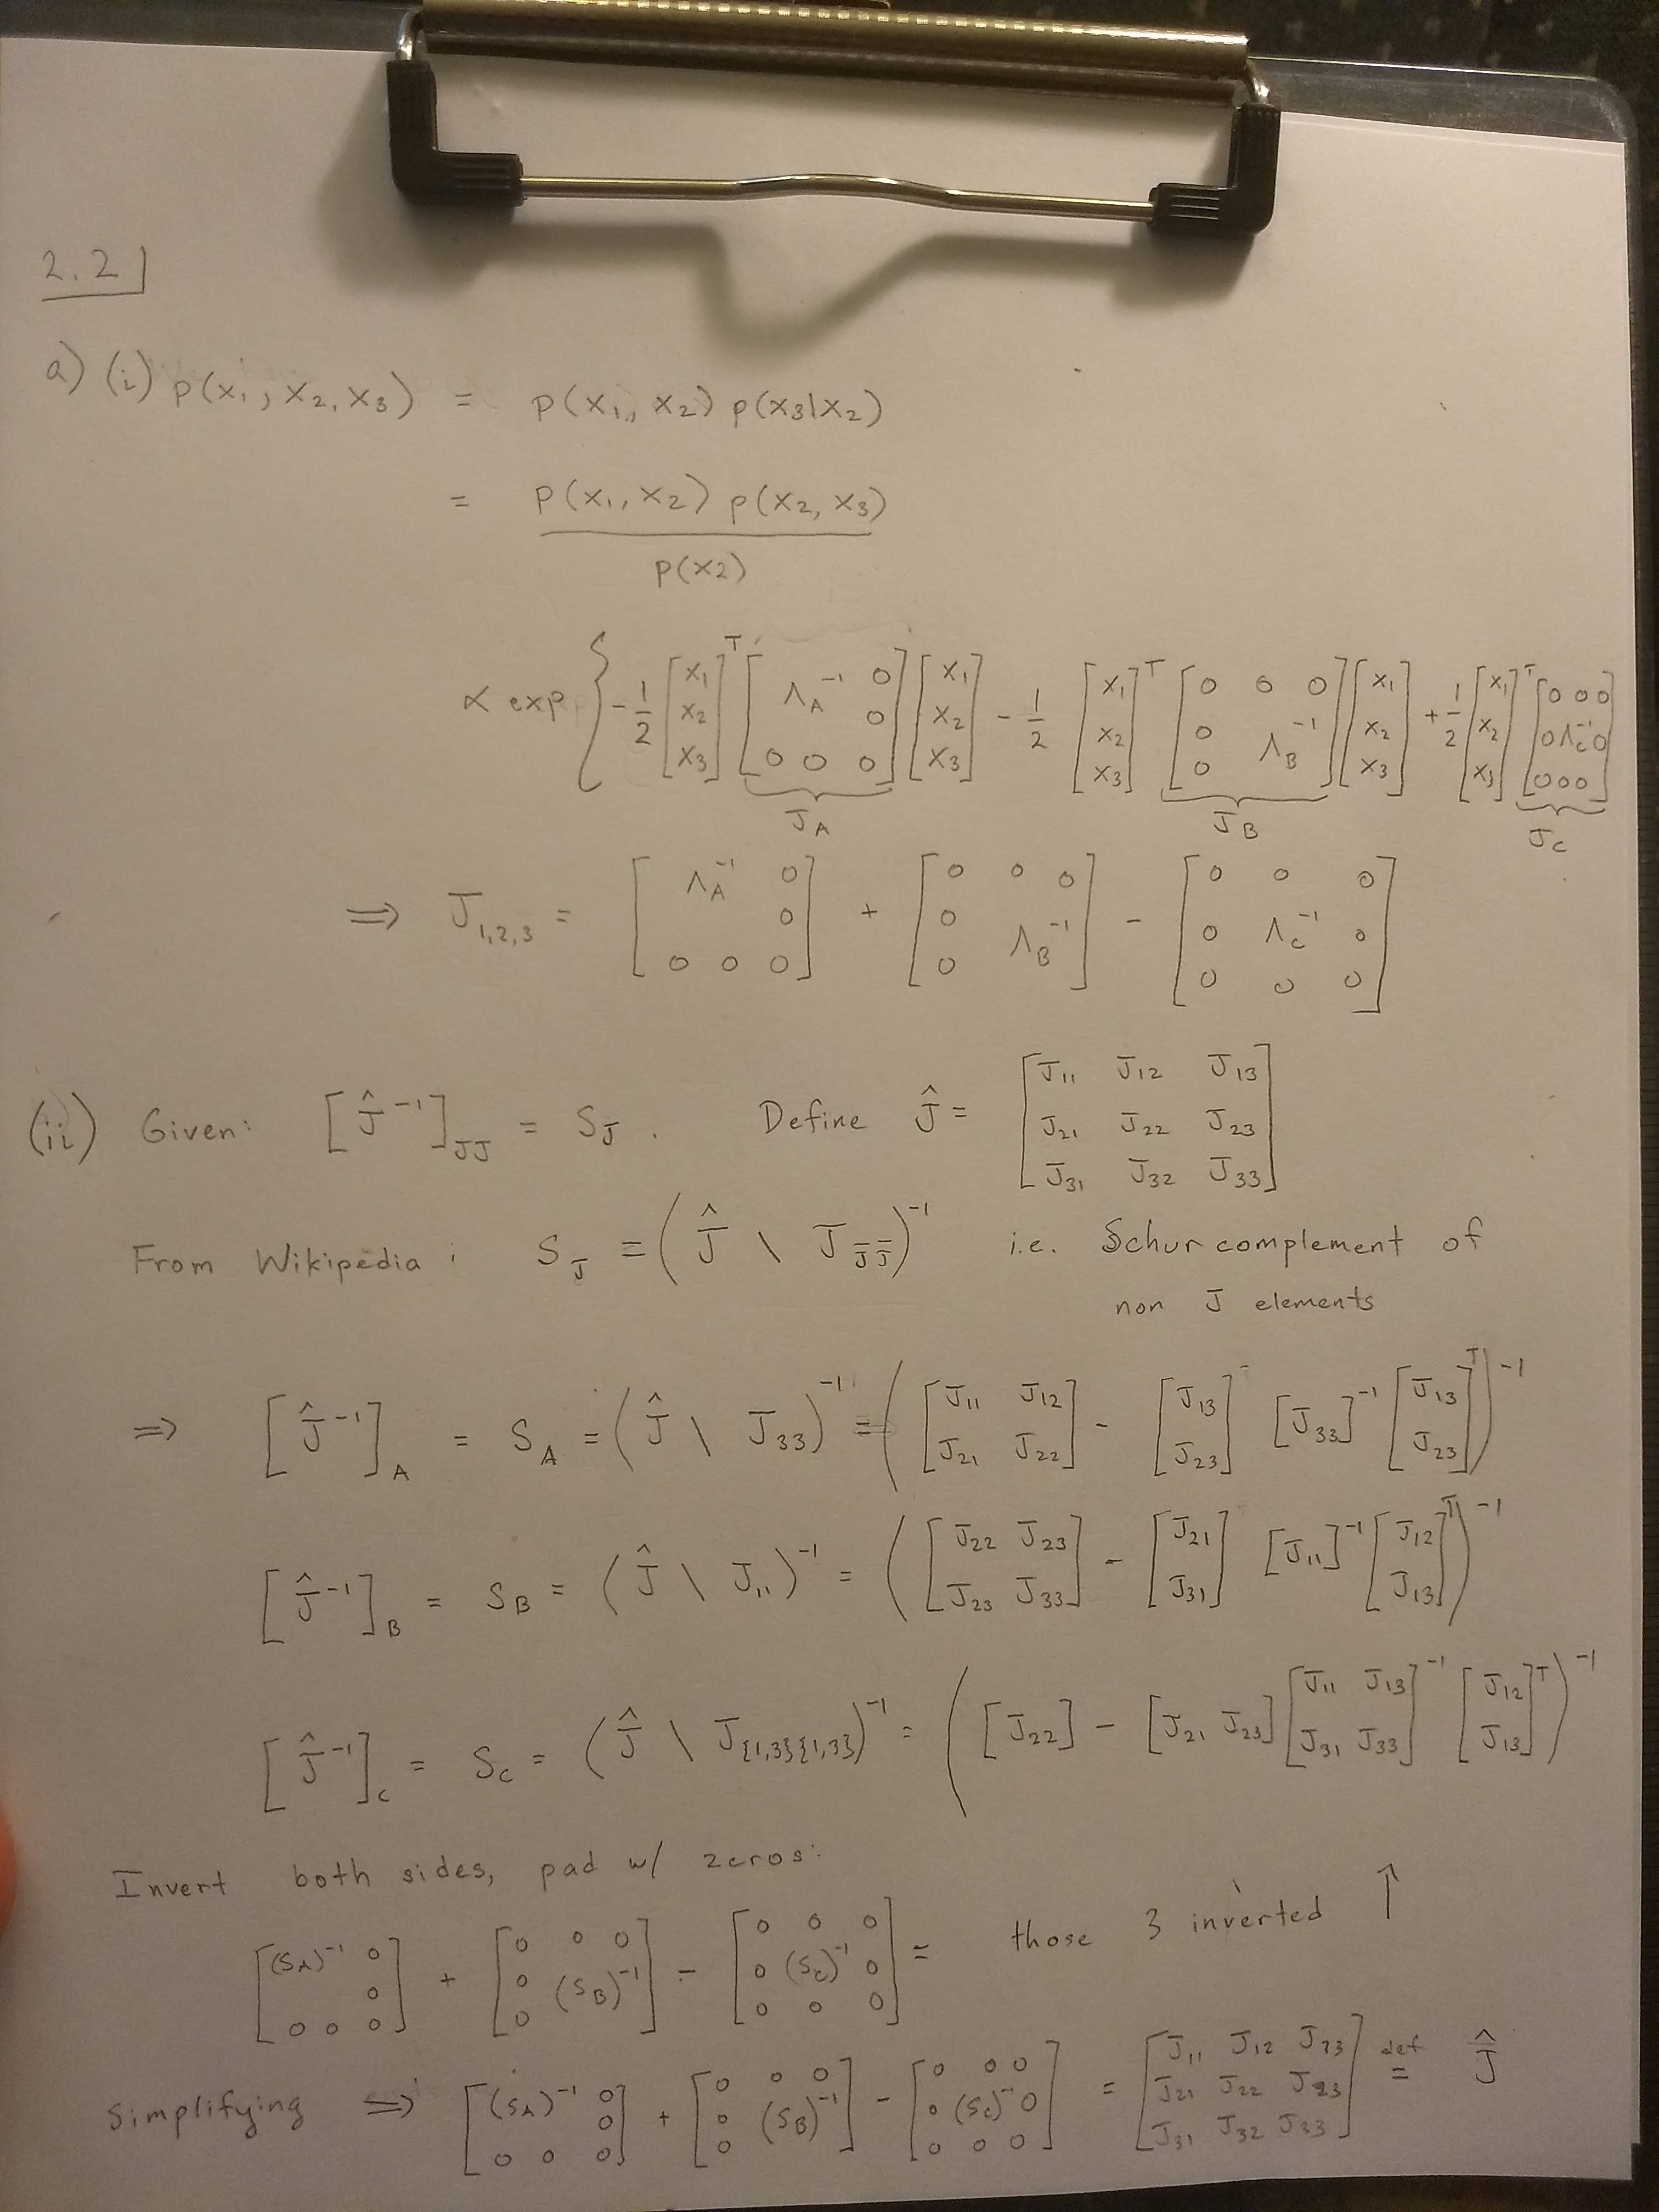 2.2
a) (i) p(x₁, x₂, x₃) = p(x₁, x₂) p(x₃|x₂)
= p(x₁, x₂) p(x₂, x₃) / p(x₂)
∝ exp { -1/2 [x₁ x₂ x₃]ᵀ [Λ_A⁻¹ 0; 0; 0 0 0] [x₁ x₂ x₃] - 1/2 [x₁ x₂ x₃]ᵀ [0 0 0; 0 Λ_B⁻¹; 0] [x₁ x₂ x₃] + 1/2 [x₁ x₂ x₃]ᵀ [0 0 0; 0 Λ_C⁻¹ 0; 0 0 0]
J_A J_B J_C
⟹ J₁,₂,₃ = [Λ_A⁻¹ 0; 0; 0 0 0] + [0 0 0; 0 Λ_B⁻¹; 0] - [0 0 0; 0 Λ_C⁻¹ 0; 0 0 0]
(ii) Given: [Ĵ⁻¹]_JJ = S_J. Define Ĵ = [J₁₁ J₁₂ J₁₃; J₂₁ J₂₂ J₂₃; J₃₁ J₃₂ J₃₃]
From Wikipedia: S_J = (Ĵ \ J_J̄J̄)⁻¹ i.e. Schur complement of
non J elements
⟹ [Ĵ⁻¹]_A = S_A = (Ĵ \ J₃₃)⁻¹ = ([J₁₁ J₁₂; J₂₁ J₂₂] - [J₁₃; J₂₃] [J₃₃]⁻¹ [J₁₃; J₂₃]ᵀ)⁻¹
[Ĵ⁻¹]_B = S_B = (Ĵ \ J₁₁)⁻¹ = ([J₂₂ J₂₃; J₂₃ J₃₃] - [J₂₁; J₃₁] [J₁₁]⁻¹ [J₁₂; J₁₃]ᵀ)⁻¹
[Ĵ⁻¹]_C = S_C = (Ĵ \ J_{1,3}{1,3})⁻¹ = ([J₂₂] - [J₂₁ J₂₃] [J₁₁ J₁₃; J₃₁ J₃₃]⁻¹ [J₁₂; J₁₃]ᵀ)⁻¹
Invert both sides, pad w/ zeros:
[(S_A)⁻¹ 0; 0; 0 0 0] + [0 0 0; 0 (S_B)⁻¹; 0] - [0 0 0; 0 (S_C)⁻¹ 0; 0 0 0] = those 3 inverted ↑
Simplifying ⟹ [(S_A)⁻¹ 0; 0; 0 0 0] + [0 0 0; 0 (S_B)⁻¹; 0] - [0 0 0; 0 (S_C)⁻¹ 0; 0 0 0] = [J₁₁ J₁₂ J₂₃; J₂₁ J₂₂ J₂₃; J₃₁ J₃₂ J₃₃] def= Ĵ